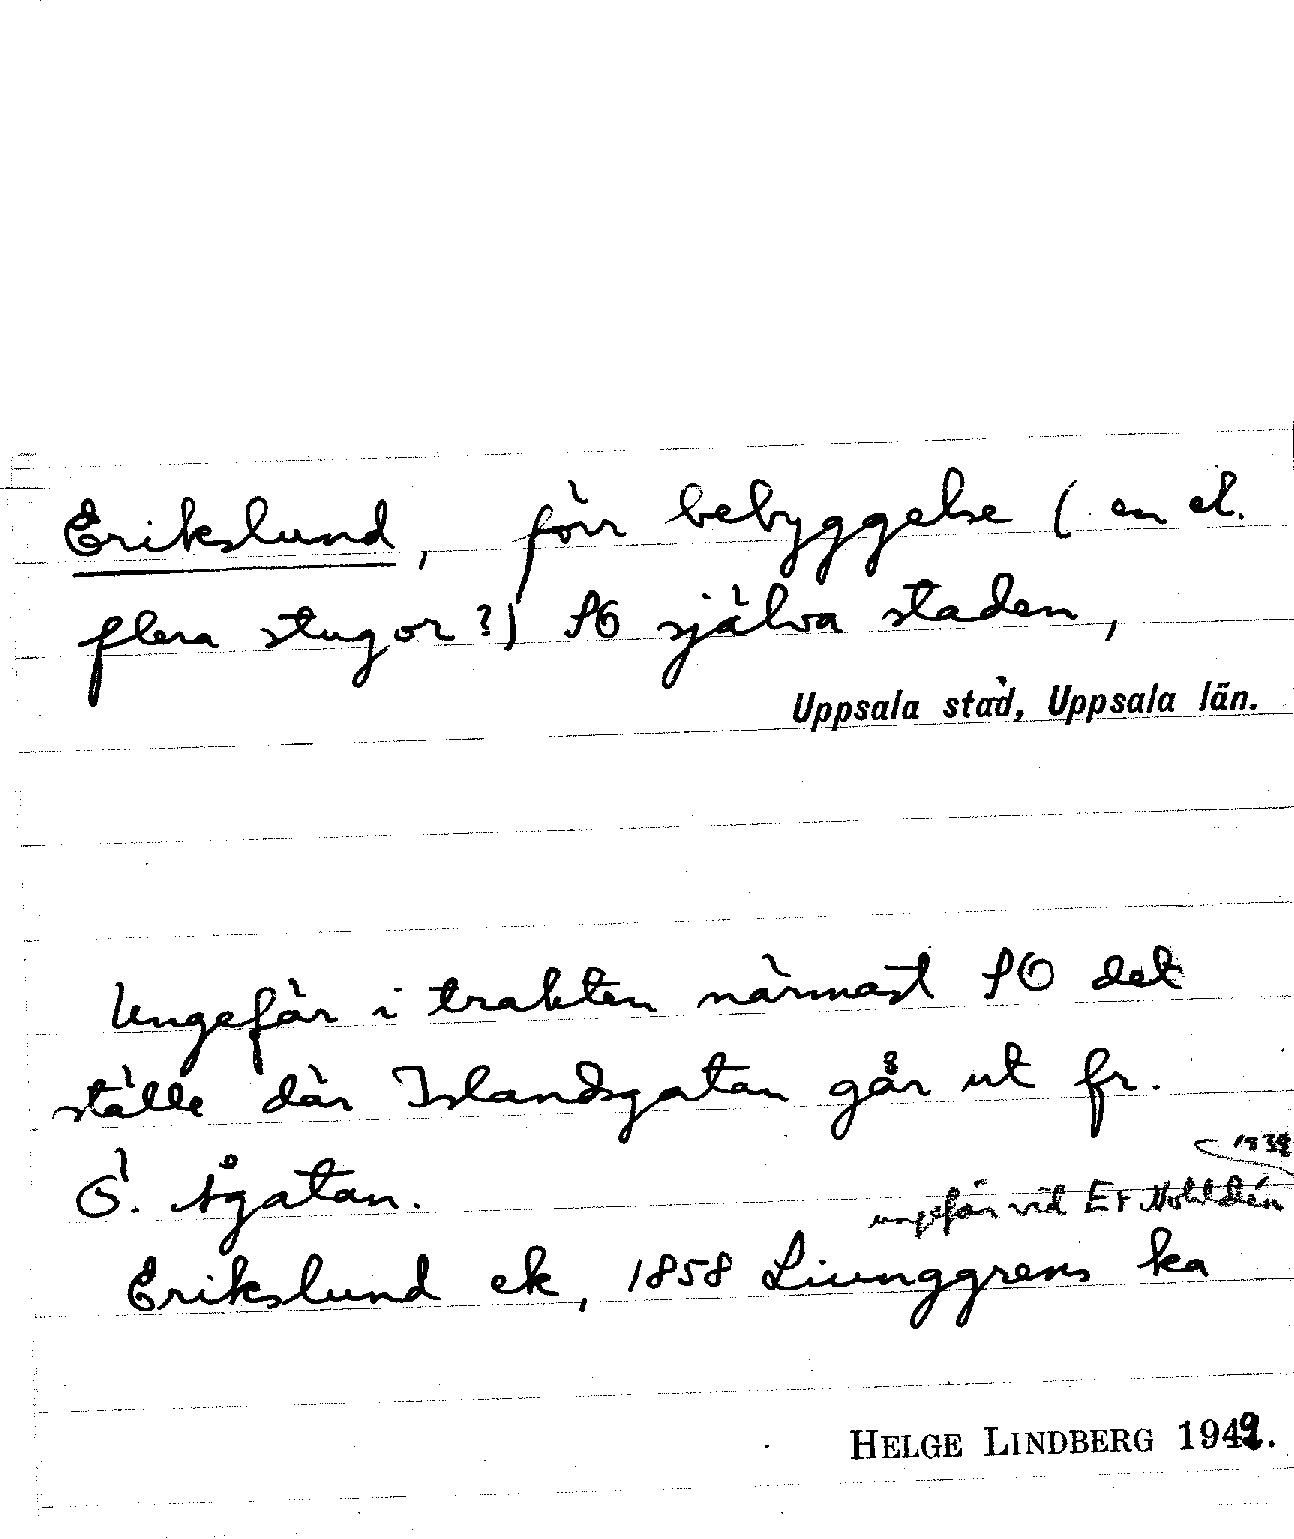 Erikslund, förr bebyggelse (en el.
flera stugor?) SO själva staden,
Uppsala stad, Uppsala län.
Ungefär i trakten närmast SO det
ställe där Islandsgatan går ut fr.
Ö. Ågatan.
ungefär vid Er
Erikslund ek, 1858 Liunggrens ka
HELGE LINDBERG 1949.